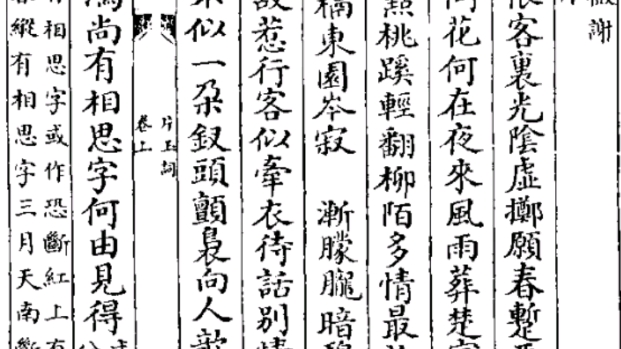 謝
客裏光陰虛擲願春暫
花何在夜來風雨葬楚
桃蹊輕翻柳陌多情最
槅東園岑寂　漸朦朧暗
惹行客似牽衣待話別情
似一朶釵頭顫裊向人
片玉詞
卷上
尚有相思字何由見得
有相思字或作恐斷紅上有
縱有相思字三月天南斷